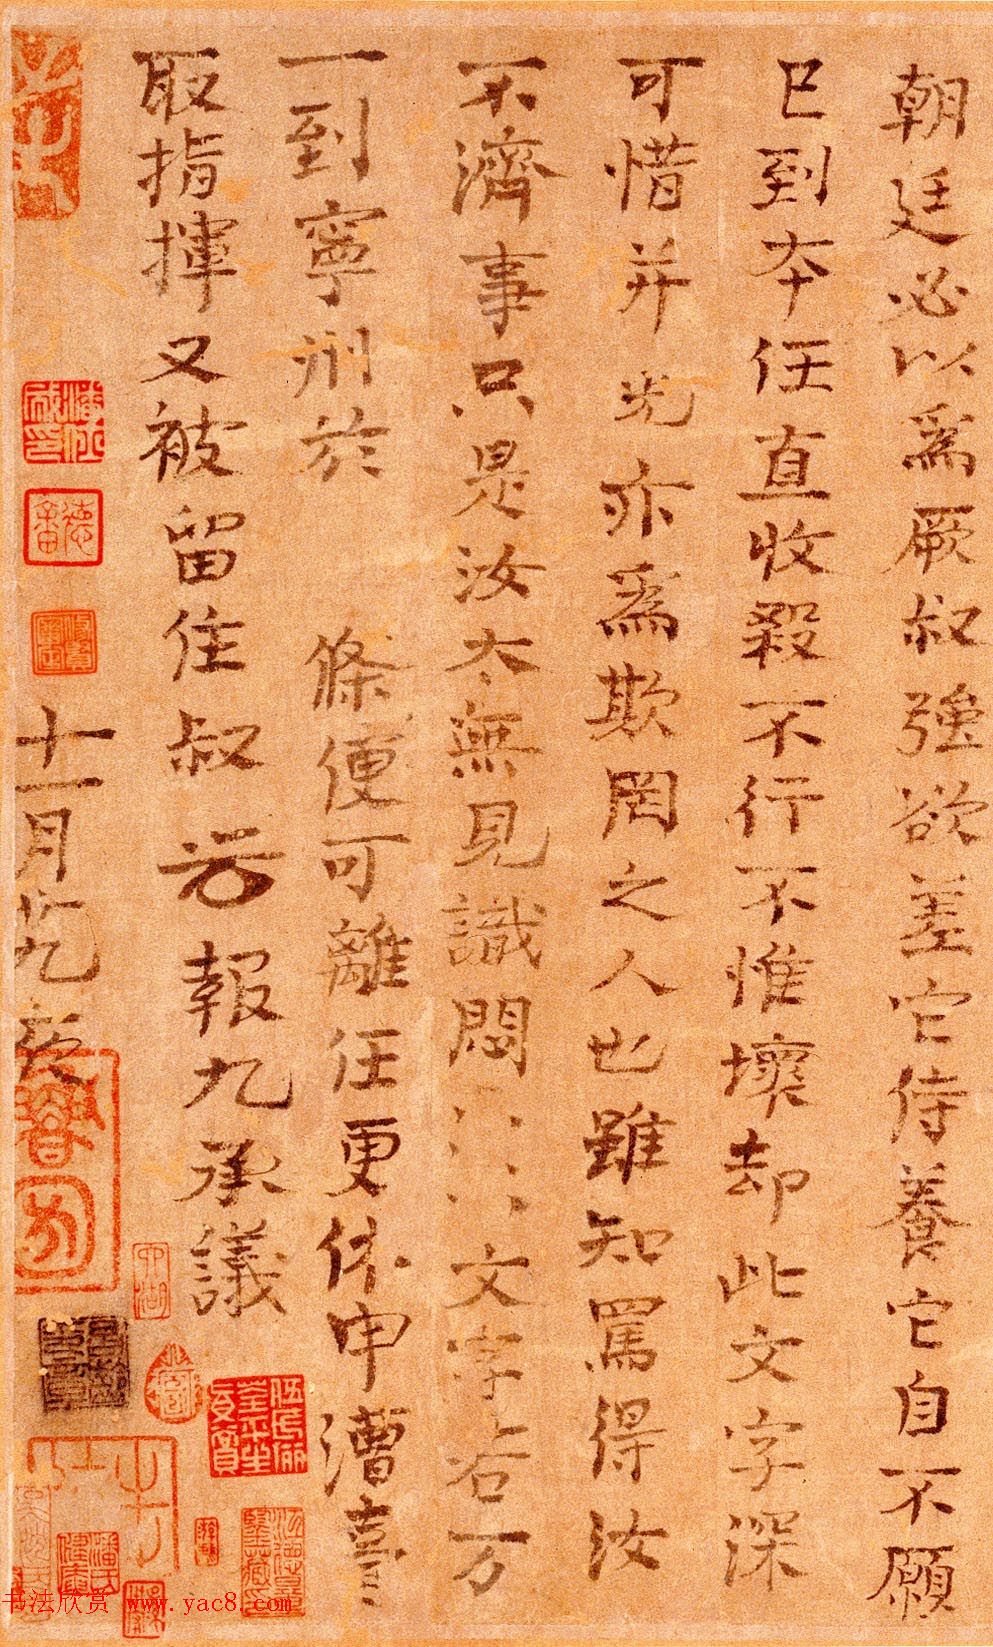 朝廷必以為厥叔強欲差它侍養它自不願
已到本任直收殺不行不惟壞却此文字深
可惜并光亦為欺罔之人也雖知罵得汝
不濟事只是汝太無見識悶ミミ文字若万
一到寧州於 條便可離任更休申漕臺
取指揮又被留住叔 報九承議
十一月
書法欣赏 www.yac8.com